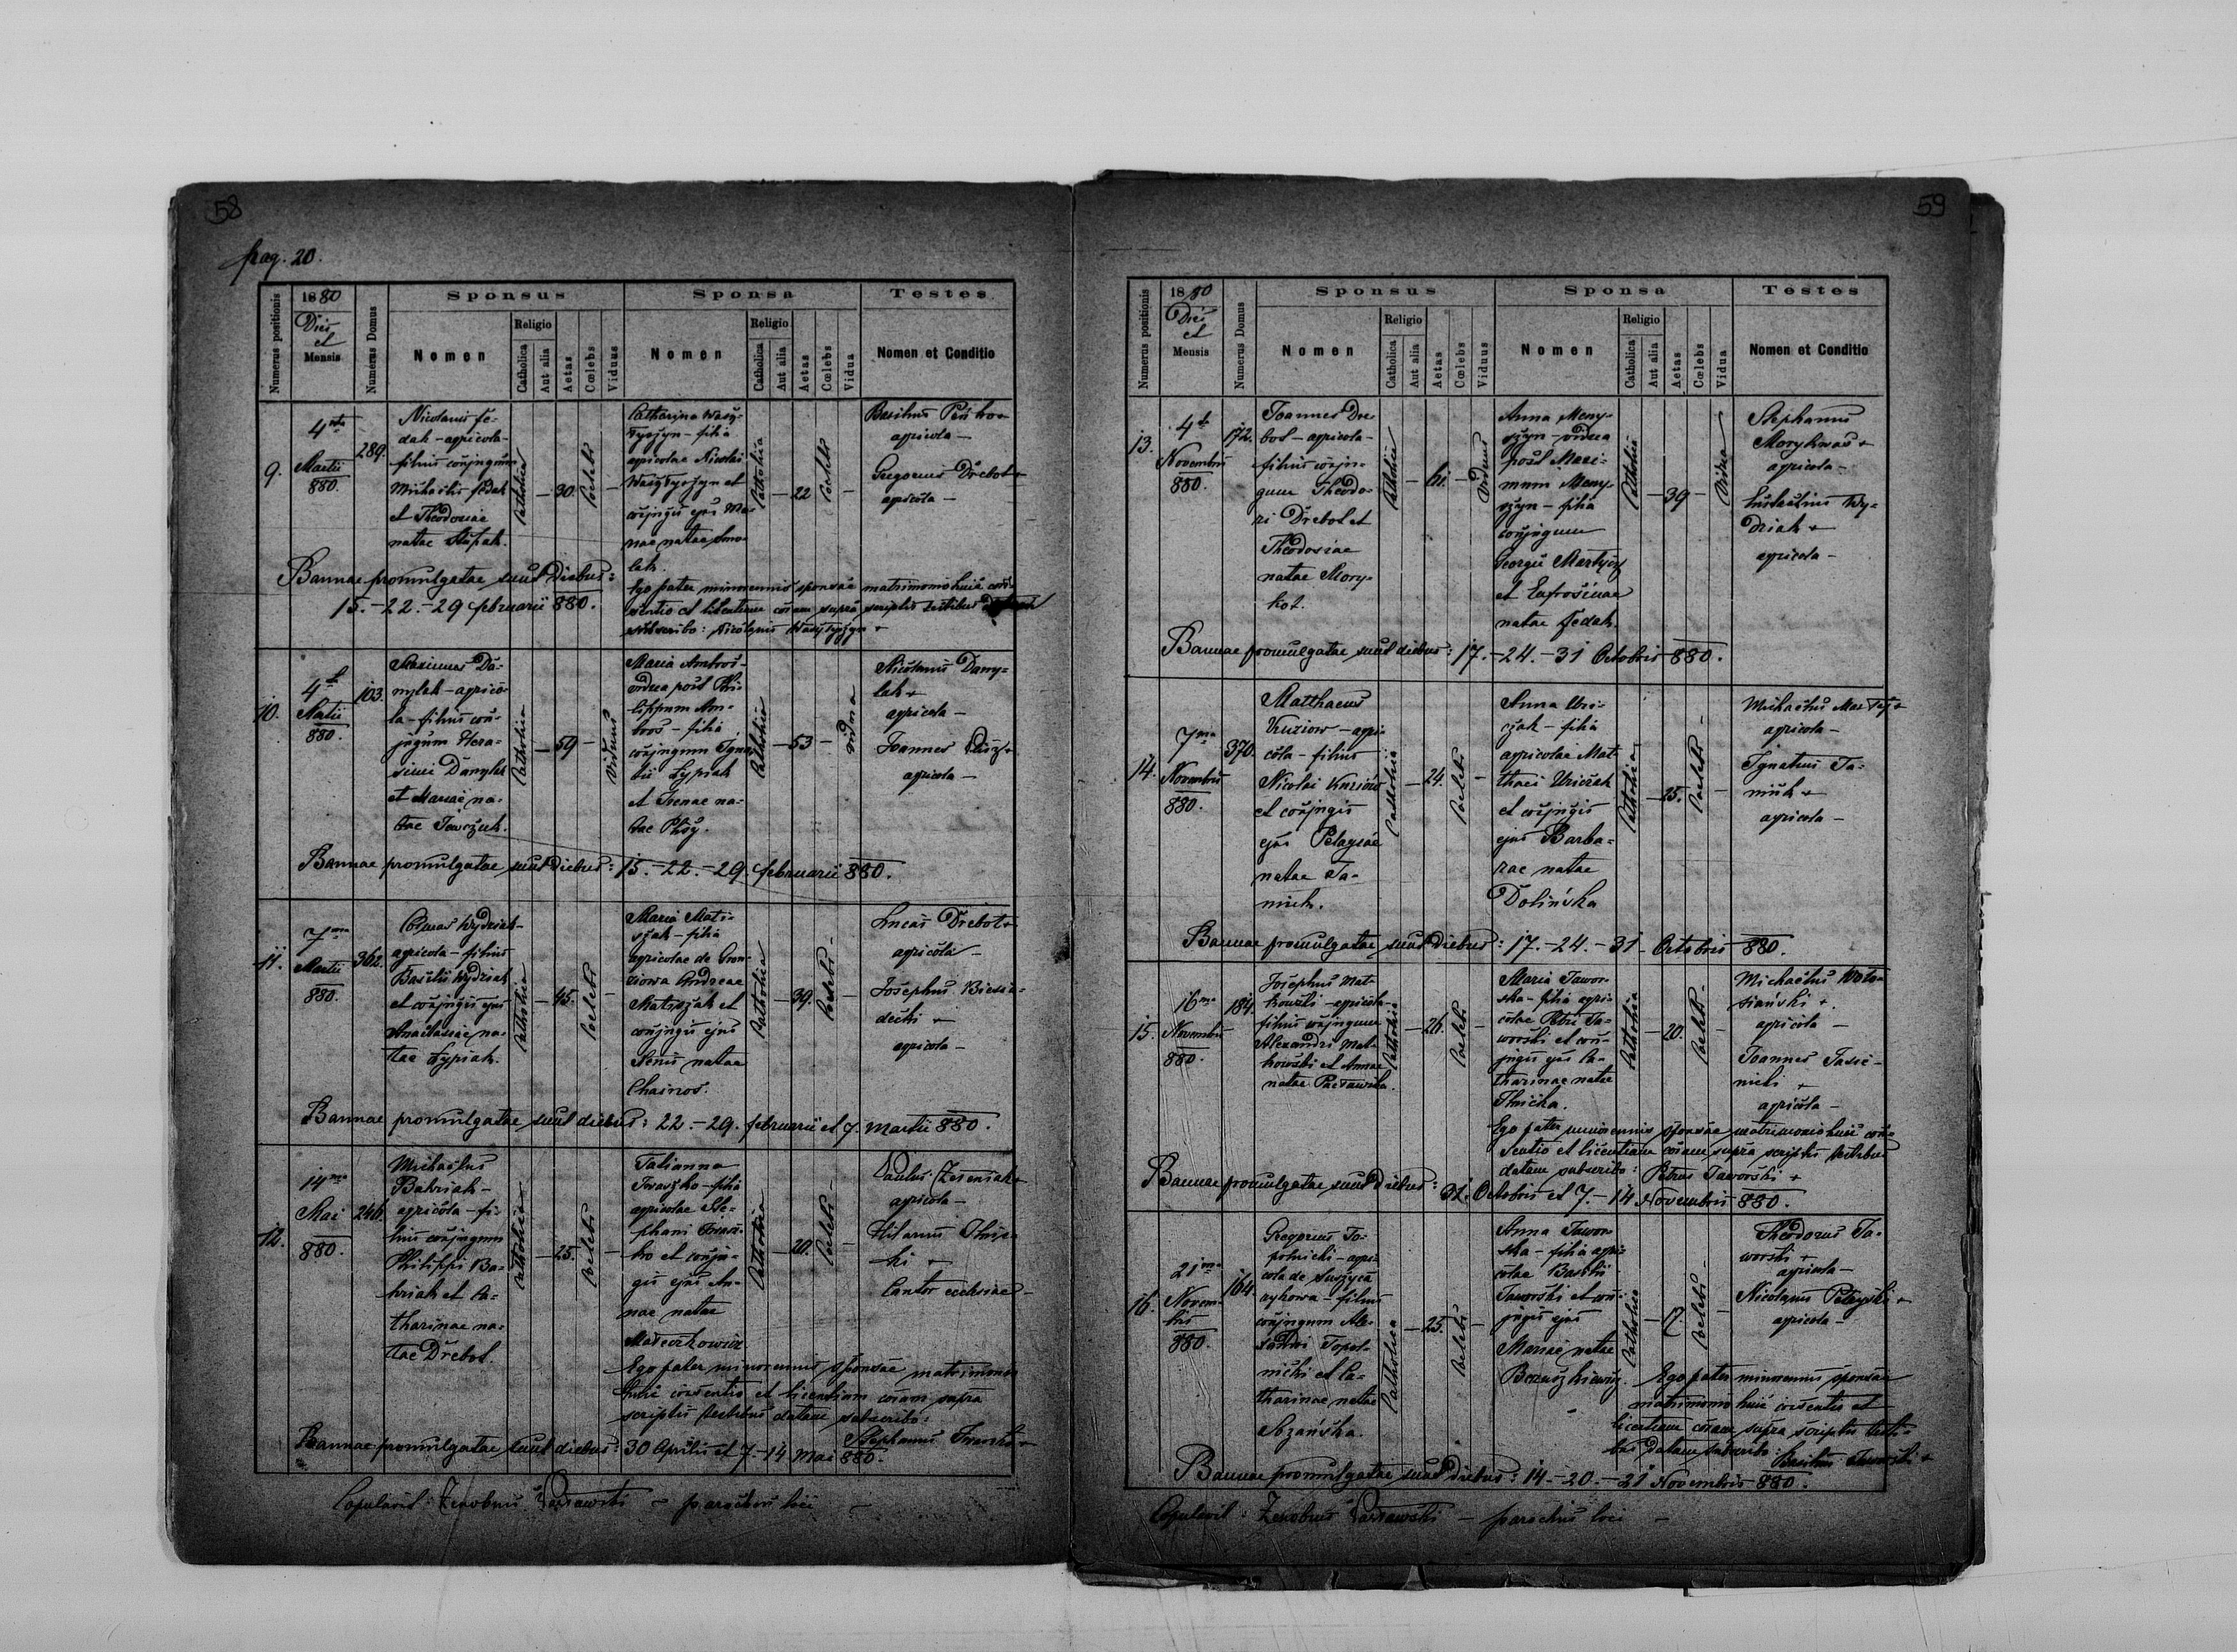 58
pag. 20.
1880
Dies
et
Mensis
Numerus positionis
Numerus Domus
Sponsus
Sponsa
Testes
Nomen
Religio
Catholica
Aut alia
Aetas
Cœlebs
Viduus
Nomen
Religio
Catholica
Aut alia
Aetas
Cœlebs
Vidua
Nomen et Conditio
9.
4ta
Martii
880.
289.
Nicolaus Fe-
dak - agricola -
filius conjugum
Michaelis Fedak
et Theodosiae
natae
Catholica
- 30. -
Coelebs
Catharina
filia
agricolae Nicolai
et
conjugis ejus
natae
Catholica
- 22 -
Coelebs
Basilius
agricola -
Gregorius Drebot +
agricola -
Bannae promulgatae sunt diebus:
15. - 22. - 29 februarii 880.
Ego pater minorennis sponsae matrimonio huic con-
sentio et licentiam coram supra scriptis testibus
subscribo: Nicolaus
10.
4t
Martii
880.
103.
Maximus Da-
nylak - agrico-
la - filius con-
jugum Hera-
simi Danylak
et Mariae na-
tae Jawczak.
Catholica
- 59 -
Viduus
Maria Ambros -
vidua post Phi-
lippum Am-
bros - filia
conjugum Igna-
tii Lypiak
et Irenae na-
tae
Catholica
- 53 -
Vidua
Nicolaus Dany-
lak +
agricola -
Joannes
agricola -
Bannae promulgatae sunt diebus: 15. - 22. - 29. februarii 880.
11.
7ma
Martii
880.
362.
Cosmas Wydziak -
agricola - filius
Basilii Wydziak
et conjugis ejus
Anastasiae na-
tae Lypiak.
Catholica
- 45. -
Coelebs
Maria Mati-
filia
agricolae de
Andreae
et
conjugis ejus
natae
Catholica
- 39. -
Coelebs -
Lucas Drebot +
agricola -
Josephus Biesia-
decki +
agricola -
Bannae promulgatae sunt diebus: 22. - 29. februarii et 7. Martii 880.
12.
14ma
Mai
880.
246.
Michaelus
Batriak -
agricola - fi-
lius conjugum
Philippi Ba-
triak et Ca-
tharinae na-
tae Drebot.
Catholica
- 25. -
Coelebs
Tatianna
filia
agricolae Ste-
phani
et conju-
gis ejus An-
nae natae
Catholica
- 20. -
Coelebs -
Paulus
agricola -
Hilarius
Cantor ecclesiae -
Ego pater minorennis sponsae matrimonio
huic consentio et licentiam coram supra
scriptis testibus datam subscribo:
Stephanus
Bannae promulgatae sunt diebus: 30 Aprilis et 7. - 14 Mai 880.
Copulavit: Zenobius - parochus loci -
59
1880
Dies
et
Mensis
Numerus positionis
Numerus Domus
Sponsus
Sponsa
Testes
Nomen
Religio
Catholica
Aut alia
Aetas
Cœlebs
Viduus
Nomen
Religio
Catholica
Aut alia
Aetas
Cœlebs
Vidua
Nomen et Conditio
13.
4t
Novembris
880.
172.
Joannes Dre-
bot - agricola -
filius conju-
gum Theodo-
ri Drebot et
Theodosiae
natae Mory-
kot.
Catholica
Viduus
Anna
vidua
post Maxi-
mum
filia
conjugum
Georgii
et Eufrosinae
natae Fedak.
Catholica
- 39 -
Vidua
Stephanus
agricola -
Eustachius Wy-
dziak +
agricola -
Bannae promulgatae sunt diebus: 17. - 24. - 31 Octobris 880.
14.
7ma
Novembris
880.
370.
Matthaeus
Kuziow - agri-
cola - filius
Nicolai Kuziow
et conjugis
ejus Pelagiae
natae Ja-
Catholica
- 24. -
Coelebs
Anna Uri-
czak - filia
agricolae Mat-
thaei Uriczak
et conjugis
ejus Barba-
rae natae
Dolińska
Catholica
- 25. -
Coelebs -
Michaelus
agricola -
Ignatius Ja-
agricola -
Bannae promulgatae sunt diebus: 17. - 24. - 31 - Octobris 880.
15.
16ma
Novembris
880.
184.
Josephus Mat-
kowski - agricola -
filius conjugum
Alexandri Mat-
kowski et Annae
natae
Catholica
- 26. -
Coelebs
Maria Jawor-
ska - filia agri-
colae Petri Ja-
worski et con-
jugis ejus Ca-
tharinae natae
Catholica
- 20. -
Coelebs -
Michaelus
agricola -
Joannes Jasie-
nicki +
agricola -
Ego pater minorennis sponsae matrimonio huic con-
sentio et licentiam coram supra scriptis testibus
datam subscribo: Petrus Jaworski +
Bannae promulgatae sunt diebus: 31. Octobris et 7. - 14 Novembris 880.
16.
21ma
Novem-
bris
880.
164.
Gregorius To-
polnicki - agri-
cola de
filius
conjugum Ale-
xandri Topol-
nicki et Ca-
tharinae natae
Catholica
- 23. -
Coelebs
Anna Jawor-
ska - filia agri-
colae Basilii
Jaworski et con-
jugis ejus
Mariae natae
Catholica
- 17. -
Coelebs -
Theodorus Ja-
worski +
agricola -
Nicolaus
agricola -
Ego pater minorennis sponsae
matrimonio huic consentio et
licentiam coram supra scriptis testi-
bus datam subscribo: Basilius Jaworski +
Bannae promulgatae sunt diebus: 14 - 20. - 21 Novembris 880.
Copulavit: Zenobius - parochus loci -